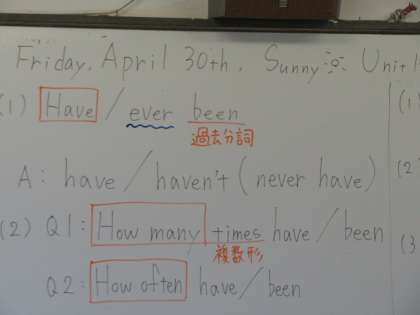 Friday, April 30th, Sunny Unit 1
(1) Have / ever been
過去分詞
A: have / haven't (never have)
(2) Q1: How many times have / been
複数形
Q2: How often have / been
(1
(2
(3